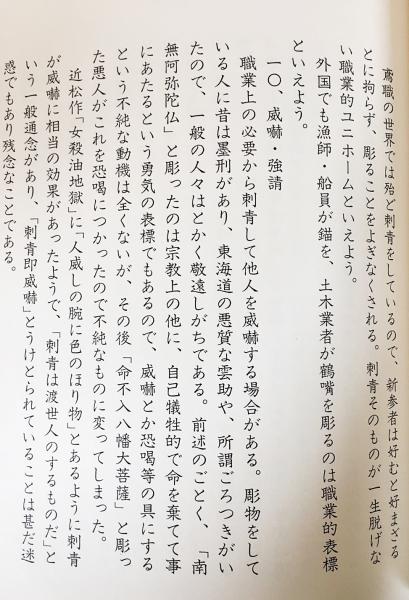 鳶職の世界では殆ど刺青をしているので、新参者は好むと好まざる
とに拘らず、彫ることをよぎなくされる。刺青そのものが一生脱げな
い職業的ユニホームといえよう。
外国でも漁師・船員が錨を、土木業者が鶴嘴を彫るのは職業的表標
といえよう。
一〇、威嚇・強請
職業上の必要から刺青して他人を威嚇する場合がある。彫物をして
いる人に昔は墨刑があり、東海道の悪質な雲助や、所謂ごろつきがい
たので、一般の人々はとかく敬遠しがちである。前述のごとく、「南
無阿弥陀仏」と彫ったのは宗教上の他に、自己犠牲的で命を棄てて事
にあたるという勇気の表標でもあるので、威嚇とか恐喝等の具にする
という不純な動機は全くないが、その後「命不入八幡大菩薩」と彫っ
た悪人がこれを恐喝につかったので不純なものに変ってしまった。
近松作「女殺油地獄」に「人威しの腕に色のほり物」とあるように刺青
が威嚇に相当の効果があったようで、「刺青は渡世人のするものだ」と
いう一般通念があり、「刺青即威嚇」とうけとられていることは甚だ迷
惑でもあり残念なことである。